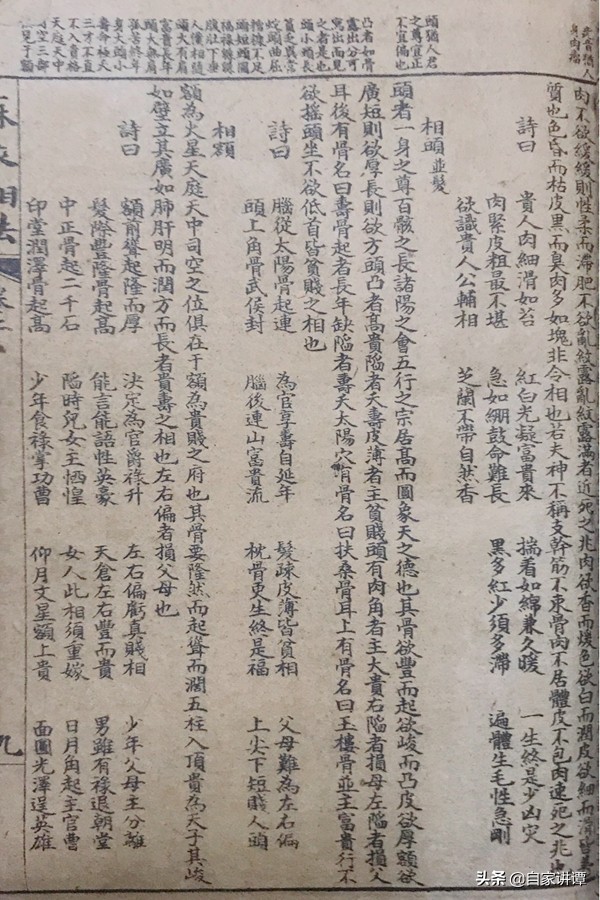 肉不欲緩緩則性柔而滯肥不欲亂紋露亂紋露滿者近死之兆肉欲香而煖色欲白而潤皮欲細而滑皆美
質也色昏而枯皮黑而臭肉多如塊非令相也若夫神不稱支幹筋不束骨肉不居體皮不包肉速死之兆也
詩曰
貴人肉細滑如苔 紅白光凝富貴來 揣着如綿兼久暖 一生終是少凶灾
肉緊皮粗最不堪 急如綳鼓命難長 黑多紅少須多滯 遍體生毛性急剛
欲識貴人公輔相 芝蘭不帶自然香
相頭並髮
頭者一身之尊百骸之長諸陽之會五行之宗居高而圓象天之德也其骨欲豐而起欲峻而凸皮欲厚額欲
廣短則欲厚長則欲方頭凸者高貴陷者夭壽皮薄者主貧賤頭有肉角者主大貴右陷者損母左陷者損父
耳後有骨名曰壽骨起者長年缺陷者壽夭太陽穴有骨名曰扶桑骨耳上有骨名曰玉樓骨並主富貴行不
欲搖頭坐不欲低首皆貧賤之相也
詩曰
腦從太陽骨起連 為官享壽自延年 髮疎皮薄皆貧相 父母難為左右偏
頭上角骨武侯封 腦後連山富貴流 枕骨更生終是福 上尖下短賤人頭
相額
額為火星天庭天中司空之位俱在于額為貴賤之府也其骨要隆然而起聳而濶五柱入頂貴為天子其峻
如壁立其廣如肺肝明而潤方而長者貴壽之相也左右偏者損父母也
詩曰
額前聳起隆而厚 決定為官爵祿升 左右偏虧真賤相 少年父母主分離
髮際豐隆骨起高 能言能語性英豪 天倉左右豐而貴 男雖有祿退朝堂
中正骨起二千石 陷時兒女主恓惶 女人此相須重嫁 日月角起主官曹
印堂潤澤骨起高 少年食祿掌功曹 仰月文星額上貴 面圓光澤逞英雄
頭猶人君
之尊宜正
不宜偏也
凸者如骨
露出分可
見而
之者是也
頭小頸長
蛇頭曲屈
頭大有角
富貴長年
頭大無角
身大頭小
壽命極夭
三才不直
不入貴格
天庭天中
司空三部
麻衣相法
卷二
九
头条 @自家讲谭